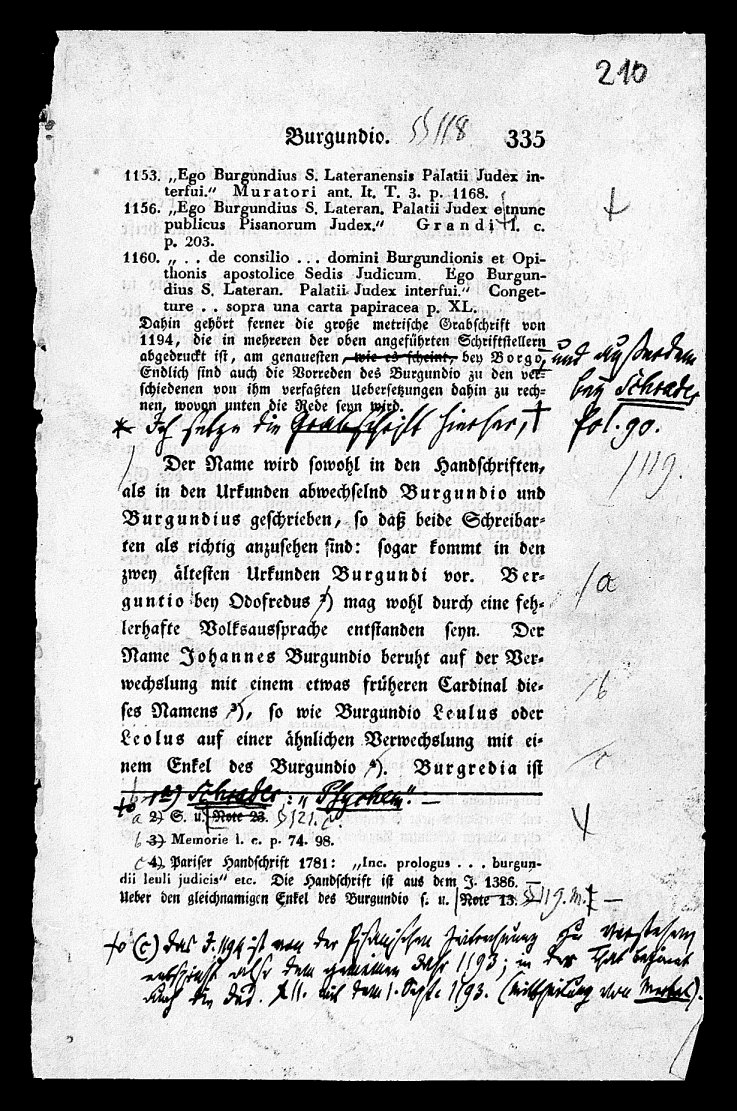 210
Burgundio. §§ 118. 335
1153. „Ego Burgundius S. Lateranensis Palatii Judex in-
terfui.“ Muratori ant. It. T. 3. p. 1168.
1156. „Ego Burgundius S. Lateran. Palatii Judex et nunc
publicus Pisanorum Judex.“ Grandi l. c.
p. 203.
1160. „ . . de consilio . . . domini Burgundionis et Opi-
thonis apostolice Sedis Judicum. Ego Burgun-
dius S. Lateran. Palatii Judex interfui.“ Conget-
ture . . sopra una carta papiracea p. XL.
Dahin gehört ferner die große metrische Grabschrift von
1194, die in mehreren der oben angeführten Schriftstellern
abgedruckt ist, am genauesten, wie es scheint, bey Borgo, und außerdem
Endlich sind auch die Vorreden des Burgundio zu den ver-
bey Schrader
schiedenen von ihm verfaßten Uebersetzungen dahin zu rech-
nen, wovon unten die Rede seyn wird.
Fol. 90.
* Ich setze die Grabschrift hierher,
119.
Der Name wird sowohl in den Handschriften,
als in den Urkunden abwechselnd Burgundio und
Burgundius geschrieben, so daß beide Schreibar-
ten als richtig anzusehen sind: sogar kommt in den
zwey ältesten Urkunden Burgundi vor. Ber-
guntio bey Odofredus ²) mag wohl durch eine feh- a
lerhafte Volksaussprache entstanden seyn. Der
Name Johannes Burgundio beruht auf der Ver-
wechslung mit einem etwas früheren Cardinal die- b
ses Namens ³), so wie Burgundio Leulus oder
Leolus auf einer ähnlichen Verwechslung mit ei-
nem Enkel des Burgundio ⁴). Burgredia ist c
Schrader:
a 2) S. u. Note 23. § 121.
b 3) Memorie l. c. p. 74. 98.
c 4) Pariser Handschrift 1781: „Inc. prologus . . . burgun-
dii leuli judicis“ etc. Die Handschrift ist aus dem J. 1386. —
Ueber den gleichnamigen Enkel des Burgundio s. u. Note 13. § 119. m. —
(c) Das J. 1194 ist von der Pisanischen zu verstehen
also dem gemeinen Jahr 1193; in der That
auch die Ind. XII. mit dem 1. Sept. 1193. (Mittheilung von Merkel).